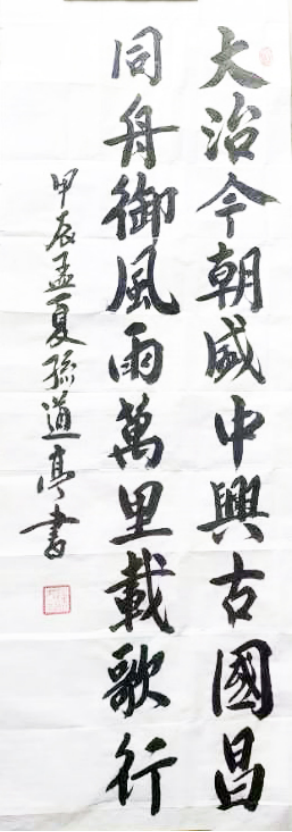 大治今朝盛中興古國昌
同舟御風雨萬里載歌行
甲辰孟夏孫道亭書